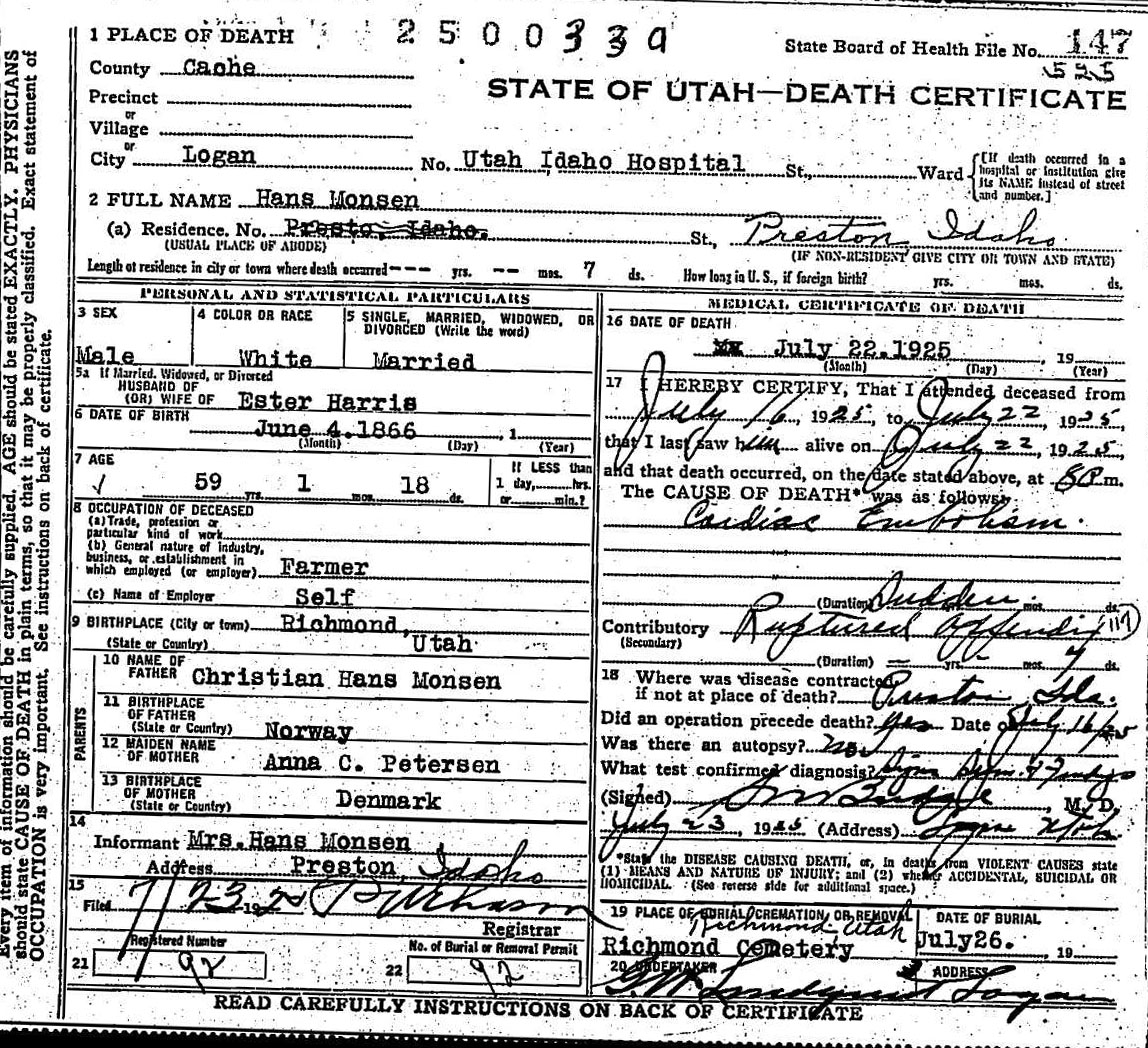 1 PLACE OF DEATH 2500339 State Board of Health File No. 147
525
County Cache
STATE OF UTAH—DEATH CERTIFICATE
Precinct
or
Village
or
City Logan No. Utah Idaho Hospital St., Ward
[If death occurred in a hospital or institution give its NAME instead of street and number.]
2 FULL NAME Hans Monsen
(a) Residence. No. Presto, Idaho. St., Preston Idaho
(USUAL PLACE OF ABODE) (IF NON-RESIDENT GIVE CITY OR TOWN AND STATE)
Length of residence in city or town where death occurred --- yrs. -- mos. 7 ds. How long in U.S., if foreign birth? yrs. mos. ds.
PERSONAL AND STATISTICAL PARTICULARS
3 SEX 4 COLOR OR RACE 5 SINGLE, MARRIED, WIDOWED, OR
DIVORCED (Write the word)
Male White Married
5a If Married, Widowed, or Divorced
HUSBAND OF
(OR) WIFE OF Ester Harris
6 DATE OF BIRTH
June 4.1866 , 1
(Month) (Day) (Year)
7 AGE If LESS than
59 yrs. 1 mos. 18 ds. 1 day, hrs.
or min.?
8 OCCUPATION OF DECEASED
(a) Trade, profession or
particular kind of work
(b) General nature of industry,
business, or establishment in
which employed (or employer) Farmer
(c) Name of Employer Self
9 BIRTHPLACE (City or town) Richmond,
(State or Country) Utah
PARENTS
10 NAME OF
FATHER Christian Hans Monsen
11 BIRTHPLACE
OF FATHER
(State or Country) Norway
12 MAIDEN NAME
OF MOTHER Anna C. Petersen
13 BIRTHPLACE
OF MOTHER
(State or Country) Denmark
14
Informant Mrs.Hans Monsen
Address Preston, Idaho
15
Filed 7/23 192
Registrar
Registered Number No. of Burial or Removal Permit
21 92 22 92
MEDICAL CERTIFICATE OF DEATH
16 DATE OF DEATH
July 22.1925 , 19
(Month) (Day) (Year)
17 I HEREBY CERTIFY, That I attended deceased from
July 16, 1925, to July 22 1925,
that I last saw him alive on July 22, 1925,
and that death occurred, on the date stated above, at 8P m.
The CAUSE OF DEATH* was as follows:
Cardiac Embolism.
(Duration) Sudden. mos. ds.
Contributory Ruptured appendix 117
(Secondary)
(Duration) yrs. mos. 7 ds.
18 Where was disease contracted
if not at place of death? Preston Ida.
Did an operation precede death? Yes Date of July 16/25
Was there an autopsy? No.
What test confirmed diagnosis?
(Signed) Budge, M. D.
July 23, 1925 (Address) Logan Utah
*State the DISEASE CAUSING DEATH, or, in deaths from VIOLENT CAUSES state
(1) MEANS AND NATURE OF INJURY; and (2) whether ACCIDENTAL, SUICIDAL OR
HOMICIDAL. (See reverse side for additional space.)
19 PLACE OF BURIAL, CREMATION, OR REMOVAL DATE OF BURIAL
Richmond Utah
Richmond Cemetery July26. , 19
20 UNDERTAKER ADDRESS
Lindquist Logan
READ CAREFULLY INSTRUCTIONS ON BACK OF CERTIFICATE
Every item of information should be carefully supplied. AGE should be stated EXACTLY. PHYSICIANS
should state CAUSE OF DEATH in plain terms, so that it may be properly classified. Exact statement of
OCCUPATION is very important. See instructions on back of certificate.